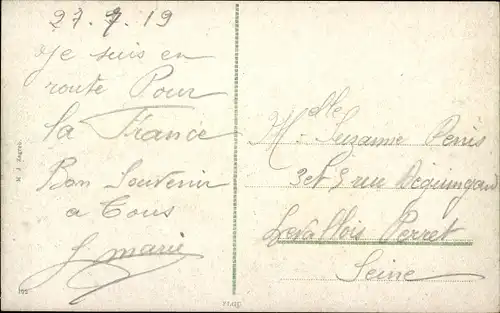 27.7.19
Je suis en
route Pour
la France
Bon Souvenir
a Tous
Marie
Mdlle Suzanne
3 et 5 rue Deguingand
Levallois Perret
Seine
N. J. Zagreb.